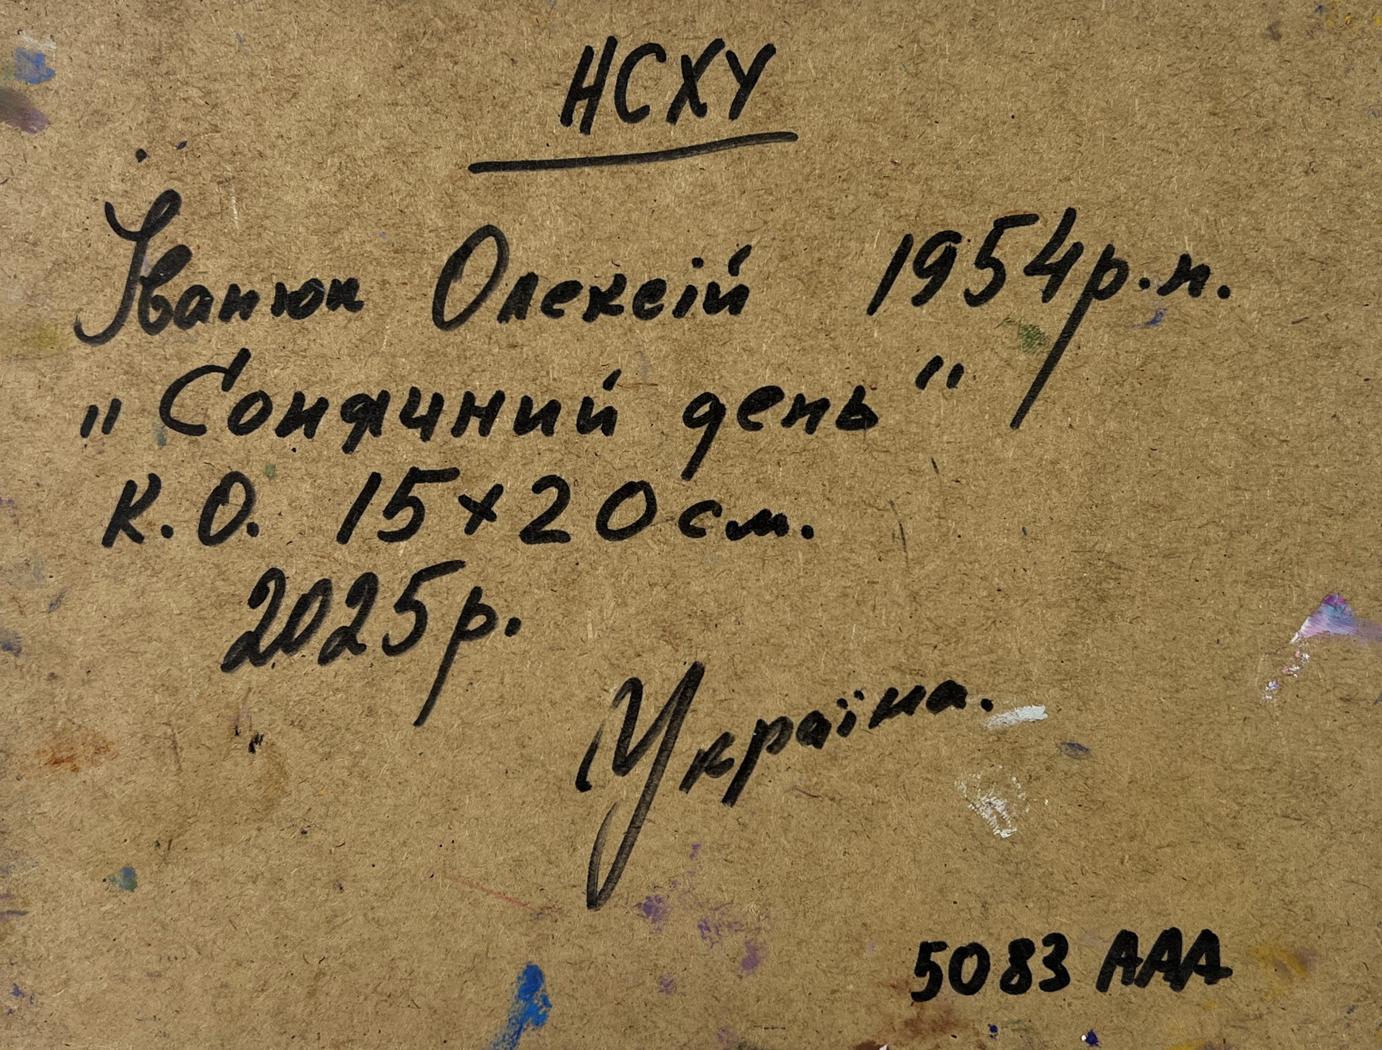 НСХУ
Іванюк Олексій 1954р.н.
"Сонячний день"
К.О. 15×20см.
2025р.
Україна.
5083 ААА